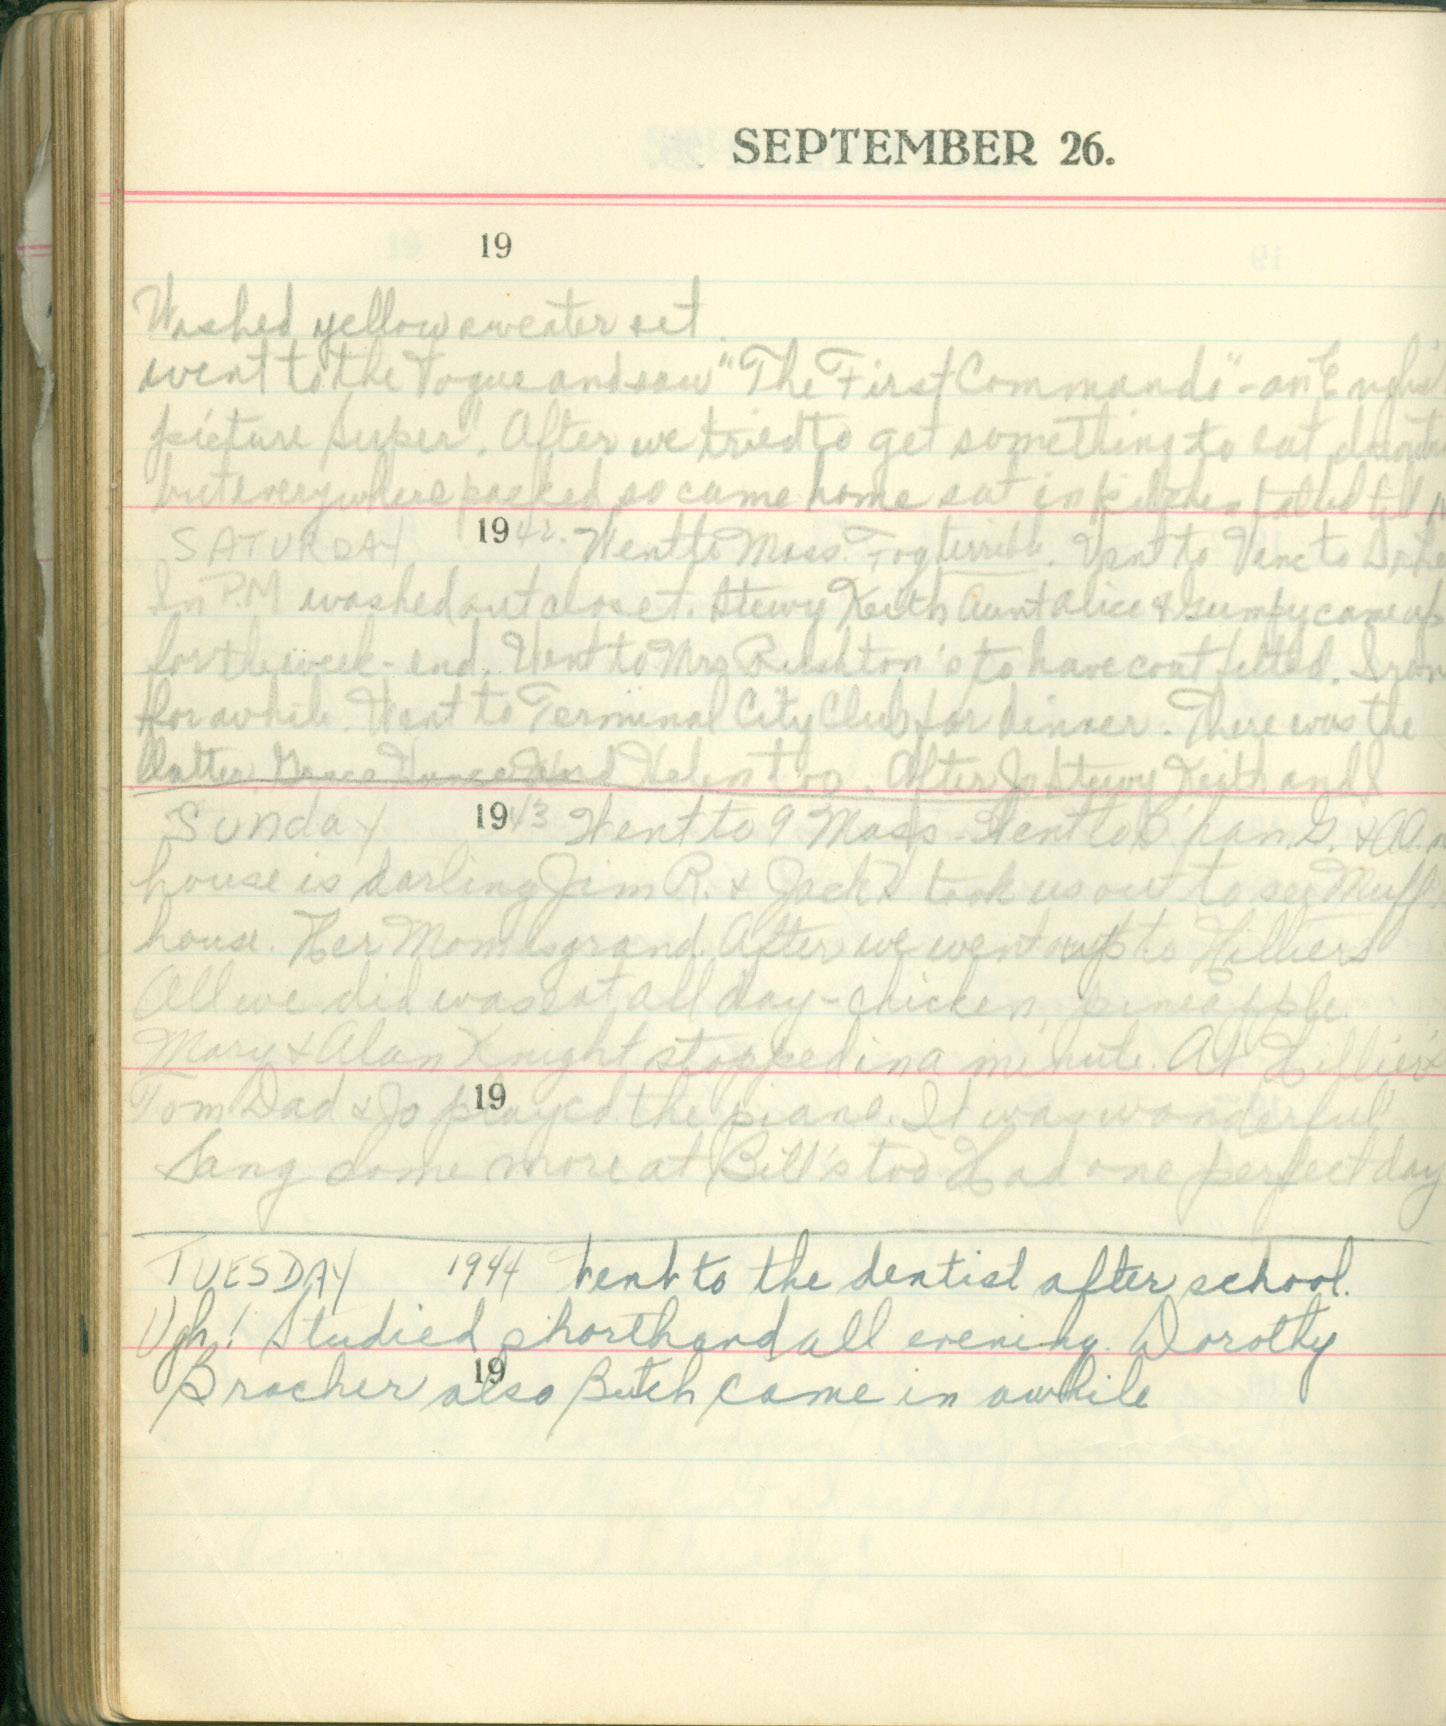 SEPTEMBER 26.
19
Washed yellow sweater set.
went to the Vogue and saw "The First Commando" - an English
picture super". After we tried to get something to eat
but everywhere packed so came home sat in kitchen talked til
SATURDAY 1942. Went to Mass. Fog terrible. Went to to
In P.M washed out closet. Stewy Keith Aunt Alice & Gumpy came up
for the week-end. Went to Mrs Rushton's to have coat fitted.
for awhile. Went to Terminal City Club for dinner. There was the
Grace and Helen too. After Jo Stewy Keith and I
Sunday 1943 Went to 9 Mass - Went to
house is darling Jim R. & Jack took us out to see Muff
house. Her Mom is grand. After we went up to Hilliers
All we did was eat all day - chicken, pineapple.
Mary & Alan Knight stopped in a minute. At Hillier's
19
Tom Dad & Jo played the piano. It was wonderful
Sang some more at Bill's too. Had one perfect day
TUESDAY 1944 Went to the dentist after school.
Ugh! Studied shorthand all evening. Dorothy
19
Bracher also Butch came in awhile